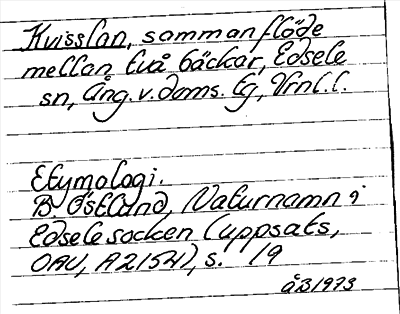 Kvisslan, sammanflöde
mellan två bäckar, Edsele
sn, Ång. v. doms. tg, Vrnl. l.
Etymologi.
B. Östlund, Naturnamn i
Edsele socken (uppsats,
OAU, A2154), s. 19
åB 1973